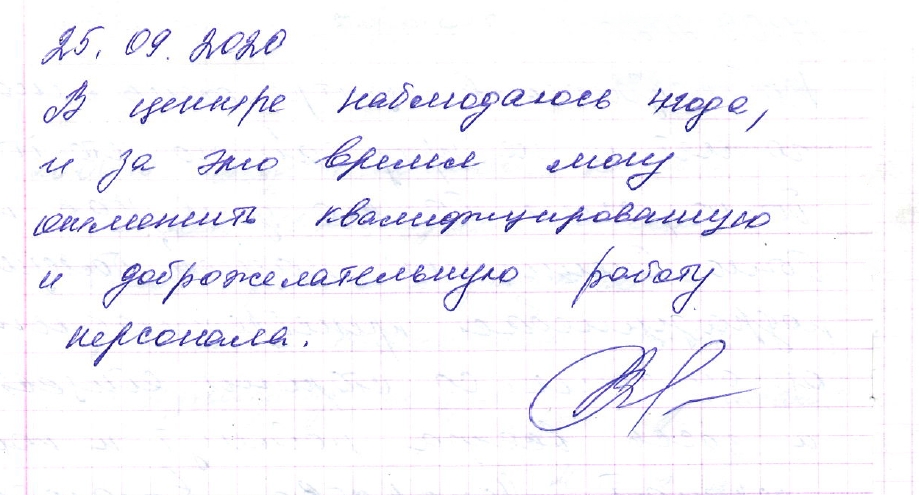 25.09.2020
В центре наблюдаюсь 4 года,
и за это время могу
отметить квалифицированную
и доброжелательную работу
персонала.